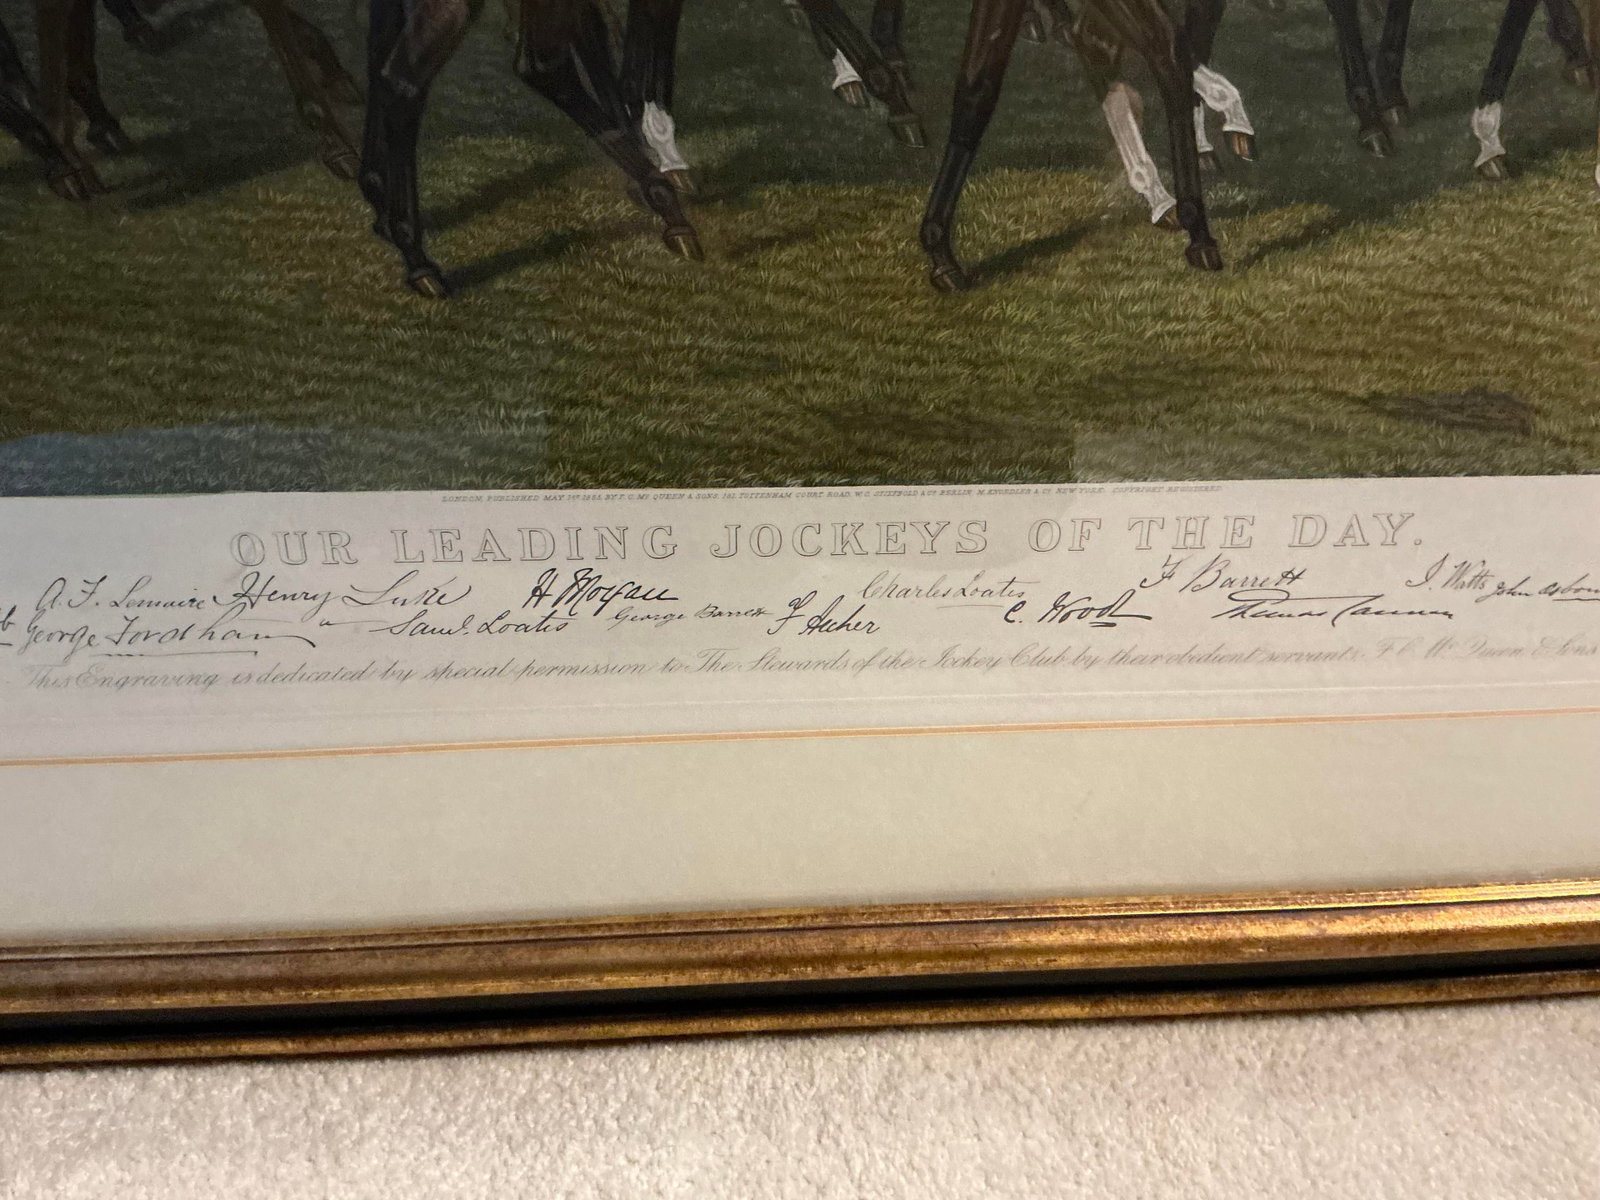 LONDON, PUBLISHED MAY 1885, BY F. C. McQUEEN & SONS, 181, TOTTENHAM COURT ROAD, W.C. STIEFBOLD & Co. BERLIN. M. KNOEDLER & Co. NEW YORK. COPYRIGHT REGISTERED.
OUR LEADING JOCKEYS OF THE DAY.
A. F. Lemaire Henry Luke H Morgan Charles Loates F Barrett J. Watts John Osborn
George Fordham Saml. Loates George Barrett F Archer C. Wood Thomas Cannon
This Engraving is dedicated by special permission to The Stewards of the Jockey Club by their obedient servants, F. C. McQueen & Sons